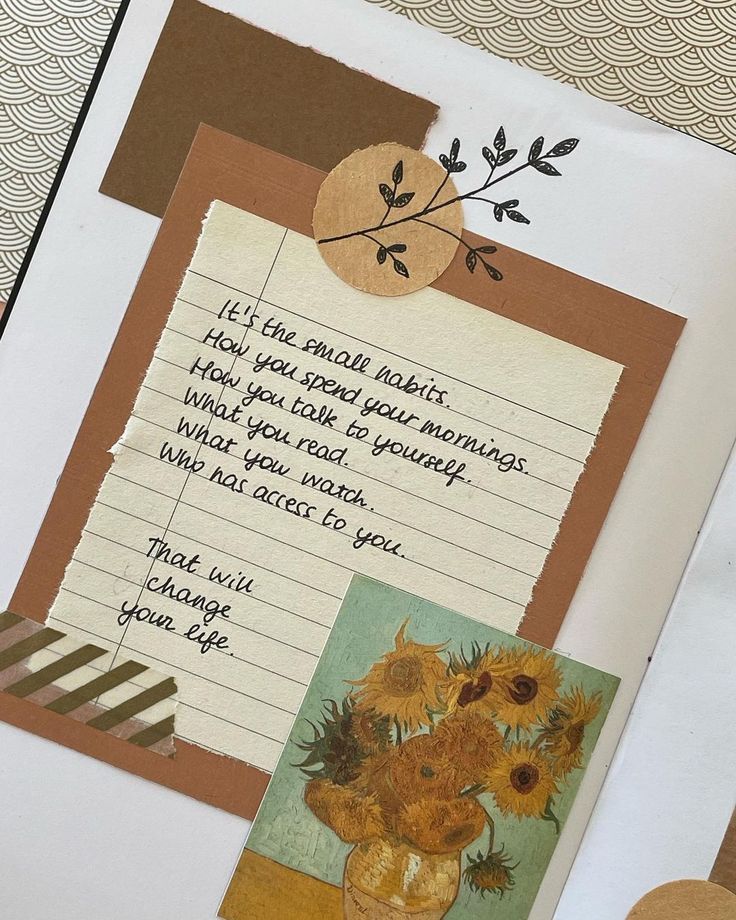 It's the small habits.
How you spend your mornings.
How you talk to yourself.
What you read.
What you watch.
Who has access to you.
That will
change
your life.
Vincent